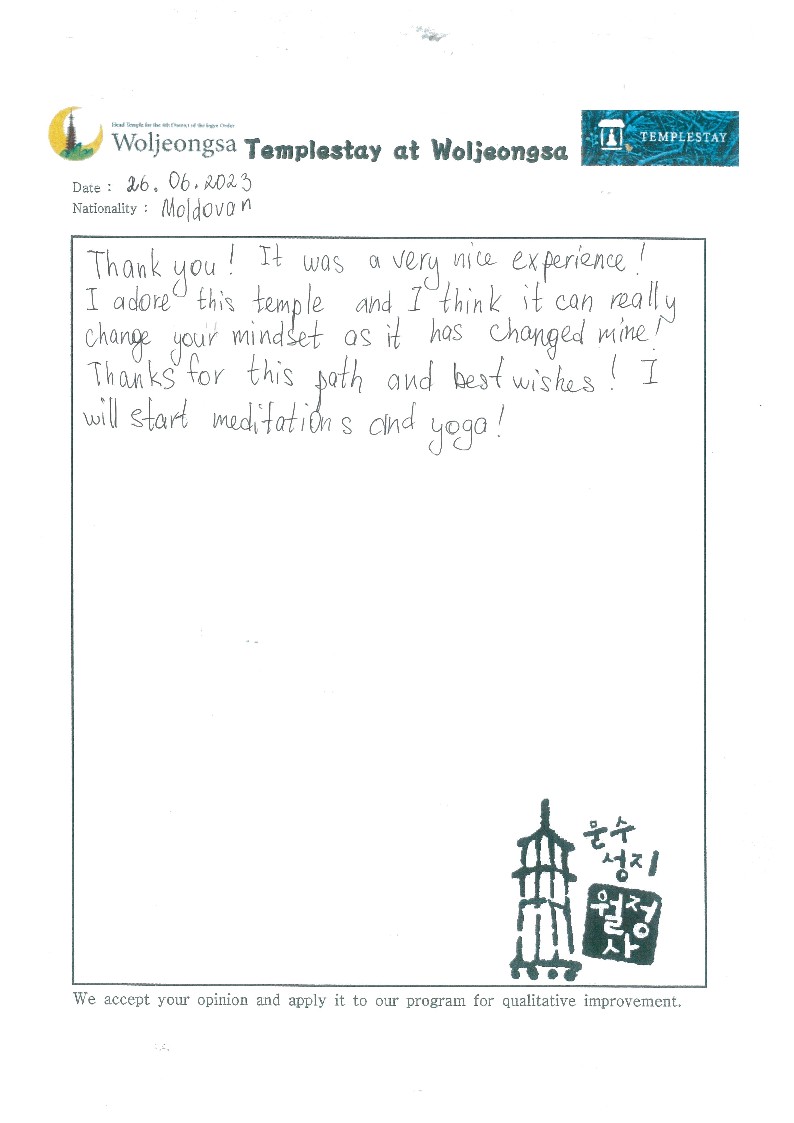 Head Temple for the 4th District of the Jogye Order
Woljeongsa Templestay at Woljeongsa
TEMPLESTAY
Date : 26. 06. 2023
Nationality : Moldovan
Thank you! It was a very nice experience!
I adore this temple and I think it can really
change your mindset as it has changed mine!
Thanks for this path and best wishes! I
will start meditations and yoga!
문수
성지
월정
사
We accept your opinion and apply it to our program for qualitative improvement.